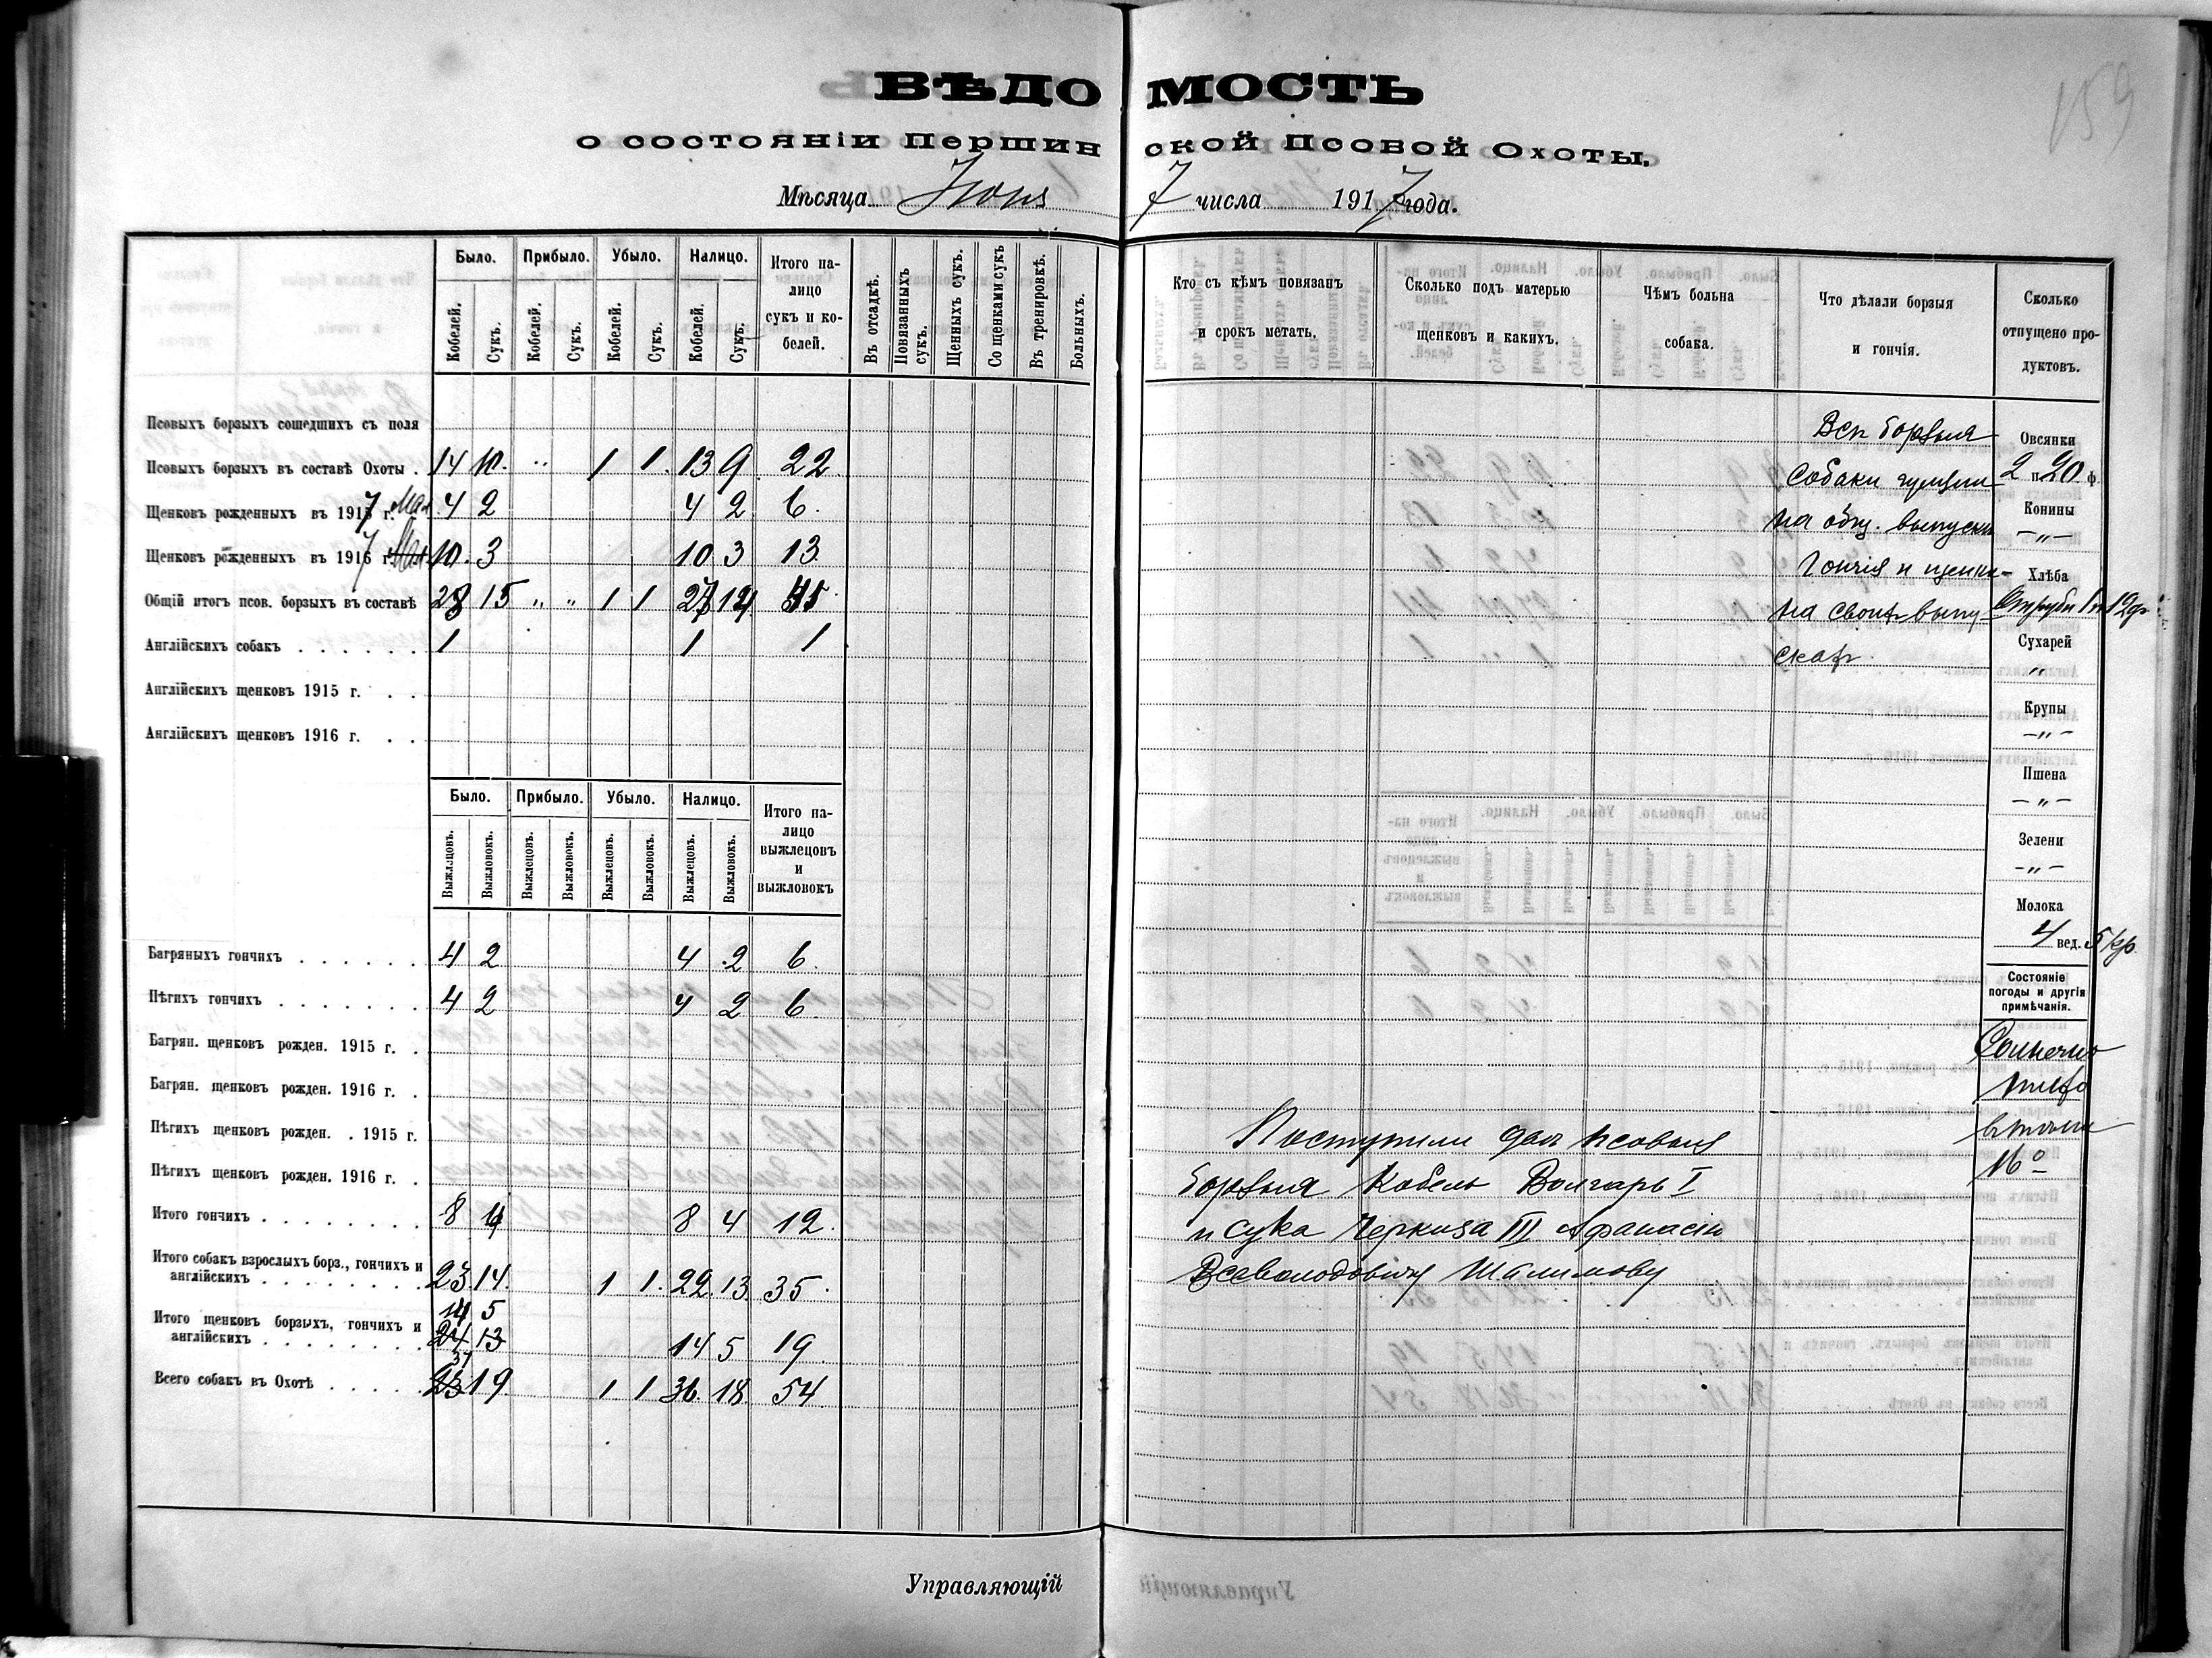 159
ВѢДОМОСТЬ
о состоянiи Першинской Псовой Охоты.
Мѣсяца Iюня 7 числа 1917 года.
Было. Прибыло. Убыло. Налицо. Итого на-
лицо
сукъ и ко-
белей.
Кобелей. Сукъ. Кобелей. Сукъ. Кобелей. Сукъ. Кобелей. Сукъ.
Въ отсадкѣ. Повязанныхъ сукъ. Щенныхъ сукъ. Со щенками сукъ Въ тренировкѣ. Больныхъ.
Псовыхъ борзыхъ сошедшихъ съ поля
Псовыхъ борзыхъ въ составѣ Охоты . 14 10. " 1 1. 13 9 22
Щенковъ рожденныхъ въ 1917 г. Мая 4 2 4 2 6.
Щенковъ рожденныхъ въ 1916 г. 10. 3 10 3 13
Общiй итогъ псов. борзыхъ въ составѣ 28 15 " " 1 1 27 14 41
Англiйскихъ собакъ . . . . . . 1 1 1
Англiйскихъ щенковъ 1915 г. . .
Англiйскихъ щенковъ 1916 г. . .
Было. Прибыло. Убыло. Налицо. Итого на-
лицо
выжлецовъ
и
выжловокъ
Выжлецовъ. Выжловокъ. Выжлецовъ. Выжловокъ. Выжлецовъ. Выжловокъ. Выжлецовъ. Выжловокъ.
Багряныхъ гончихъ . . . . . . 4 2 4 2 6.
Пѣгихъ гончихъ . . . . . . . 4 2 4 2 6.
Багрян. щенковъ рожден. 1915 г. .
Багрян. щенковъ рожден. 1916 г. .
Пѣгихъ щенковъ рожден. . 1915 г.
Пѣгихъ щенковъ рожден. 1916 г. .
Итого гончихъ . . . . . . . . 8 4 8 4 12.
Итого собакъ взрослыхъ борз., гончихъ и
англiйскихъ . . . . . . . . 23. 14. 1 1. 22. 13. 35.
14 5
Итого щенковъ борзыхъ, гончихъ и
англiйскихъ . . . . . . . . 24 13 14 5 19.
37
Всего собакъ въ Охотѣ . . . . . 19. 1 1 36. 18. 54.
Управляющiй
Кто съ кѣмъ повязанъ
и срокъ метать.
Сколько подъ матерью
щенковъ и какихъ.
Чѣмъ больна
собака.
Что дѣлали борзыя
и гончiя.
Сколько
отпущено про-
дуктовъ.
Всѣ борзыя
собаки гуляли
на общ. выпуски
Гончiя и щенки
на своихъ выпу-
скахъ.
Овсянки
2 п. 20 ф.
Конины
— " —
Хлѣба
Отруби 1 п. 12 ф.
Сухарей
"
Крупы
— " —
Пшена
— " —
Зелени
— " —
Молока
4 вед. 5 кр.
Состоянiе
погоды и другiя
примѣчанiя.
Солнечно
тихо
16°
Поступили двѣ псовыя
борзыя Кобель Волгарь I
и сука Черкиза III Афанасiю
Всеволодовичу Шалимову